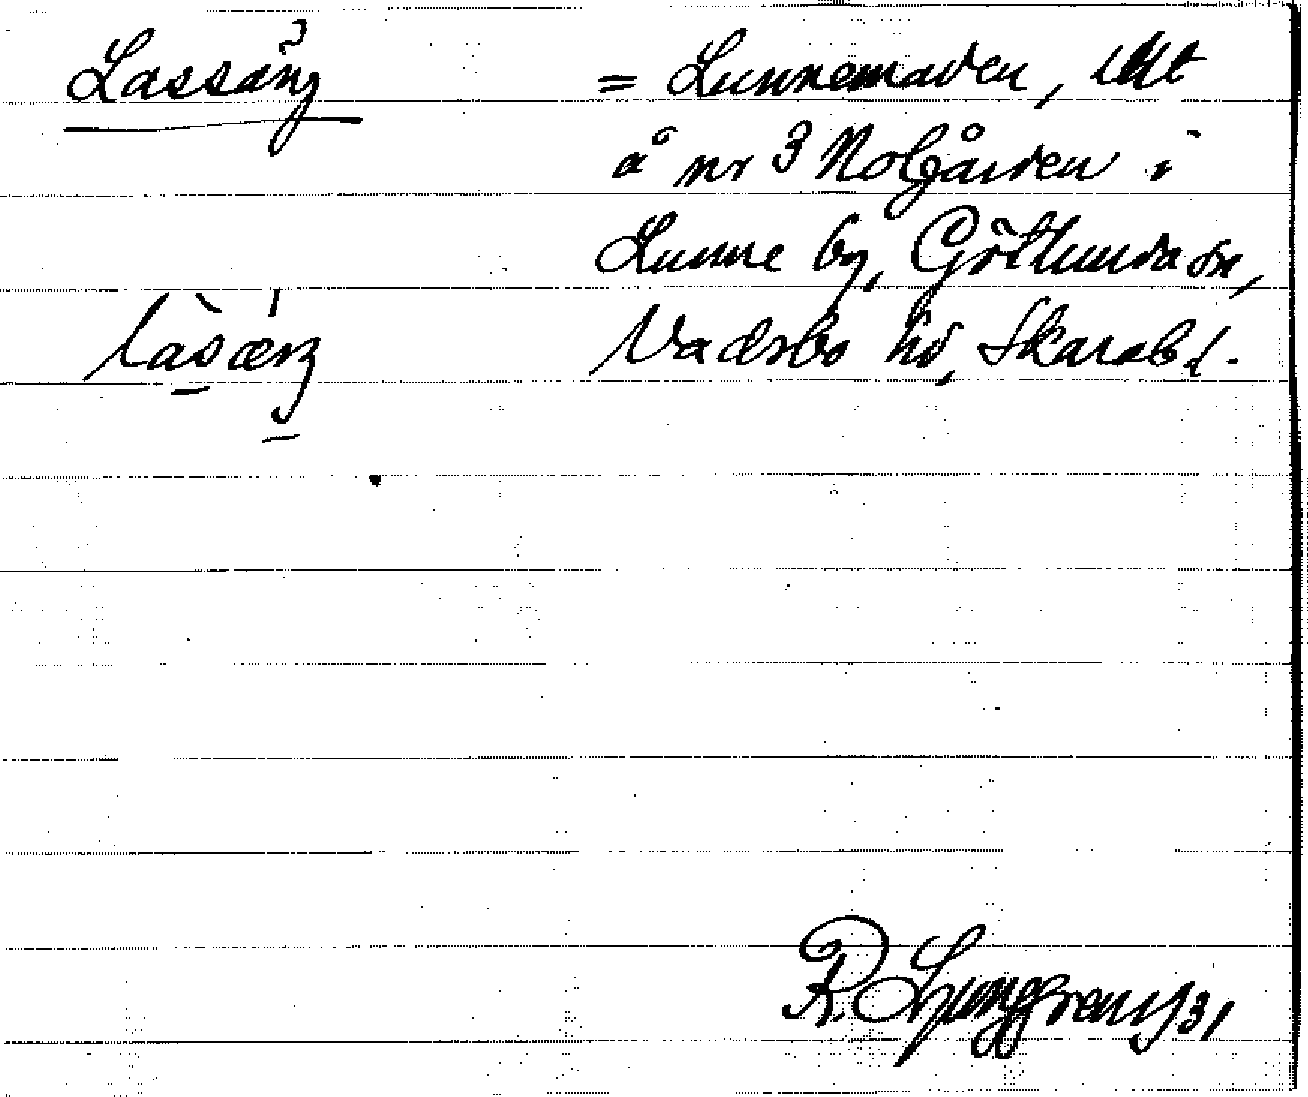 Lassäng = Lunnemaden, ströt
å nr 3 Nolgården i
Lunne by, Götlunda sn,
làsæŋ Vadsbo hd, Skarab. l.
R. Ljunggren /31